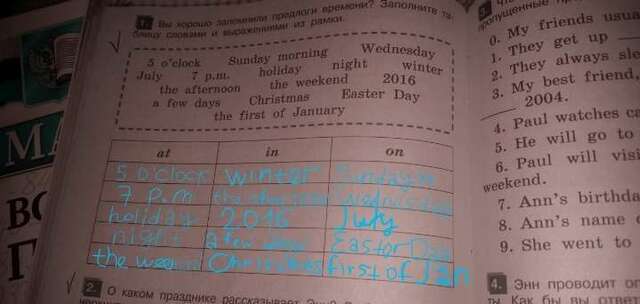 1. Вы хорошо запомнили предлоги времени? Заполните та-
блицу словами и выражениями из рамки.
5 o'clock Sunday morning Wednesday
July 7 p.m. holiday night winter
the afternoon the weekend 2016
a few days Christmas Easter Day
the first of January
at in on
5 o'clock winter Sunday
7 p.m the Wednesday
holiday 2016 July
night a few Easter Day
the Christmas first of Jan
2. О каком празднике рассказывает
МА
ВО
П
пропущенные
0. My friends usu
1. They get up
2. They always sle
3. My best friend,
2004.
4. Paul watches ca
5. He will go to
6. Paul will visi
weekend.
7. Ann's birthda
8. Ann's name
9. She went to
4. Энн проводит
ты. Как бы вы